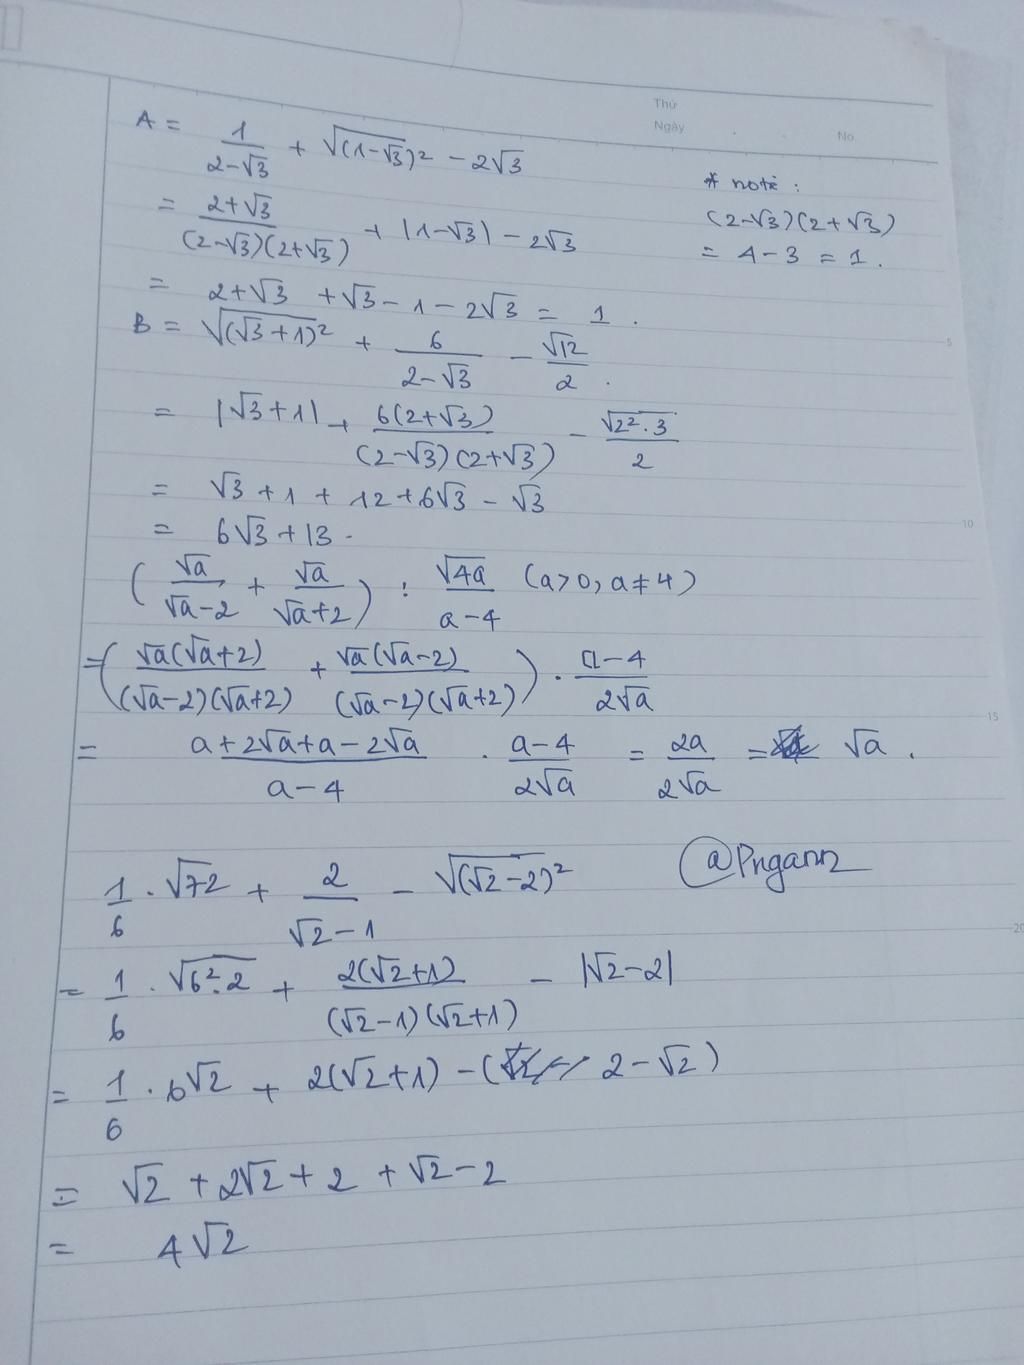 Thứ
Ngày
No
A = 1/(2-√3) + √((1-√3)²) - 2√3
= (2+√3)/((2-√3)(2+√3)) + |1-√3| - 2√3
* note :
(2-√3)(2+√3)
= 4-3 = 1.
= 2+√3 + √3 - 1 - 2√3 = 1.
B = √((√3+1)²) + 6/(2-√3) - √12/2.
= |√3+1| + 6(2+√3)/((2-√3)(2+√3)) - √(2².3)/2
5
= √3 + 1 + 12 + 6√3 - √3
= 6√3 + 13.
10
(√a/(√a-2) + √a/(√a+2)) : √4a/(a-4) (a>0, a≠4)
= (√a(√a+2)/((√a-2)(√a+2)) + √a(√a-2)/((√a-2)(√a+2))) . (a-4)/(2√a)
15
= (a+2√a+a-2√a)/(a-4) . (a-4)/(2√a) = 2a/(2√a) = √a.
@Pngann
1/6 . √72 + 2/(√2-1) - √((√2-2)²)
20
= 1/6 . √(6².2) + 2(√2+1)/((√2-1)(√2+1)) - |√2-2|
= 1/6 . 6√2 + 2(√2+1) - (2-√2)
= √2 + 2√2 + 2 + √2 - 2
= 4√2